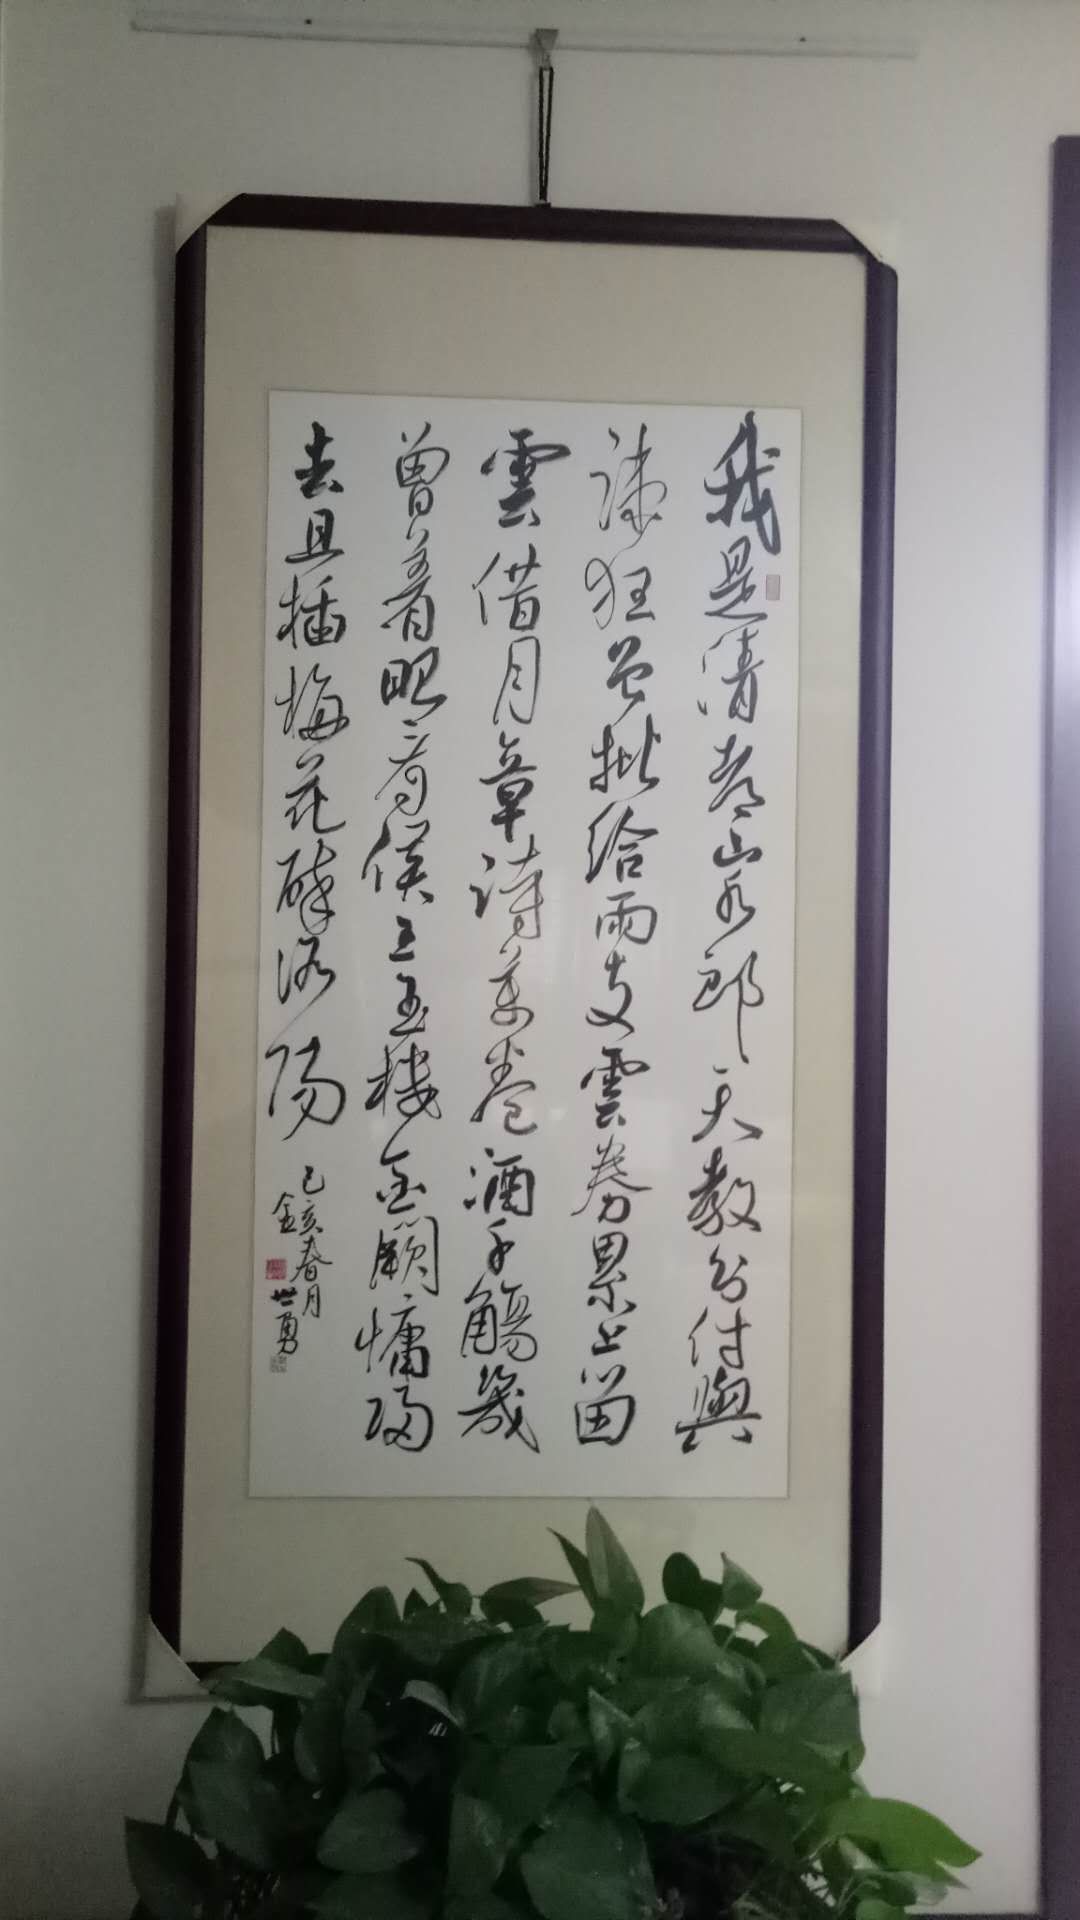 我是清都山水郎天教分付與
疎狂曾批給雨支雲券累上留
雲借月章詩萬卷酒千觴幾
曾着眼看侯王玉樓金闕慵歸
去且插梅花醉洛陽
己亥春月
金世勇